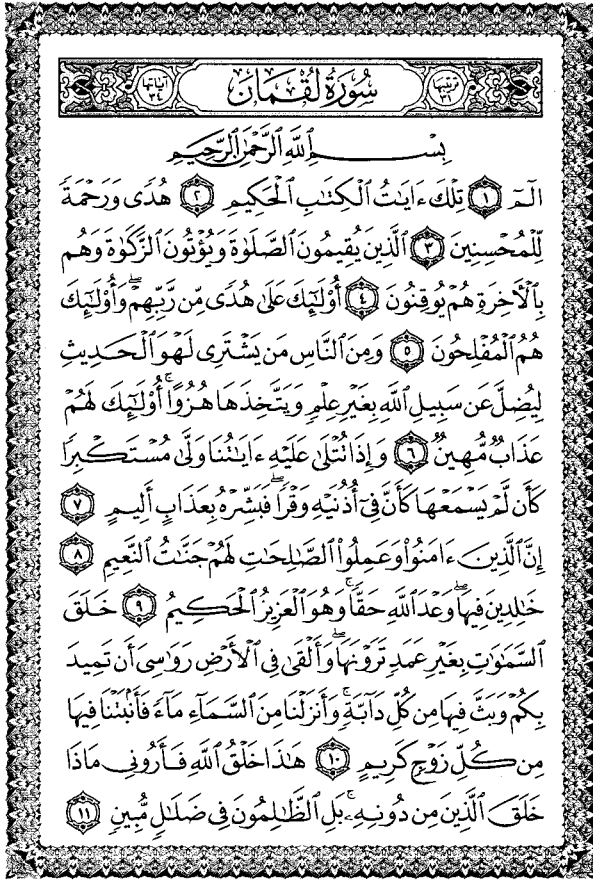 ترتيبها ٣١ سُورَةُ لُقْمَانَ آياتها ٣٤
بِسْمِ ٱللَّهِ ٱلرَّحْمَٰنِ ٱلرَّحِيمِ
الٓمٓ ١ تِلْكَ ءَايَٰتُ ٱلْكِتَٰبِ ٱلْحَكِيمِ ٢ هُدًى وَرَحْمَةً
لِّلْمُحْسِنِينَ ٣ ٱلَّذِينَ يُقِيمُونَ ٱلصَّلَوٰةَ وَيُؤْتُونَ ٱلزَّكَوٰةَ وَهُم
بِٱلْءَاخِرَةِ هُمْ يُوقِنُونَ ٤ أُوْلَٰٓئِكَ عَلَىٰ هُدًى مِّن رَّبِّهِمْ ۖ وَأُوْلَٰٓئِكَ
هُمُ ٱلْمُفْلِحُونَ ٥ وَمِنَ ٱلنَّاسِ مَن يَشْتَرِى لَهْوَ ٱلْحَدِيثِ
لِيُضِلَّ عَن سَبِيلِ ٱللَّهِ بِغَيْرِ عِلْمٍ وَيَتَّخِذَهَا هُزُوًا ۚ أُوْلَٰٓئِكَ لَهُمْ
عَذَابٌ مُّهِينٌ ٦ وَإِذَا تُتْلَىٰ عَلَيْهِ ءَايَٰتُنَا وَلَّىٰ مُسْتَكْبِرًا
كَأَن لَّمْ يَسْمَعْهَا كَأَنَّ فِىٓ أُذُنَيْهِ وَقْرًا ۖ فَبَشِّرْهُ بِعَذَابٍ أَلِيمٍ ٧
إِنَّ ٱلَّذِينَ ءَامَنُوا۟ وَعَمِلُوا۟ ٱلصَّٰلِحَٰتِ لَهُمْ جَنَّٰتُ ٱلنَّعِيمِ ٨
خَٰلِدِينَ فِيهَا ۖ وَعْدَ ٱللَّهِ حَقًّا ۚ وَهُوَ ٱلْعَزِيزُ ٱلْحَكِيمُ ٩ خَلَقَ
ٱلسَّمَٰوَٰتِ بِغَيْرِ عَمَدٍ تَرَوْنَهَا ۖ وَأَلْقَىٰ فِى ٱلْأَرْضِ رَوَٰسِىَ أَن تَمِيدَ
بِكُمْ وَبَثَّ فِيهَا مِن كُلِّ دَآبَّةٍ ۚ وَأَنزَلْنَا مِنَ ٱلسَّمَآءِ مَآءً فَأَنۢبَتْنَا فِيهَا
مِن كُلِّ زَوْجٍ كَرِيمٍ ١٠ هَٰذَا خَلْقُ ٱللَّهِ فَأَرُونِى مَاذَا
خَلَقَ ٱلَّذِينَ مِن دُونِهِۦ ۚ بَلِ ٱلظَّٰلِمُونَ فِى ضَلَٰلٍ مُّبِينٍ ١١